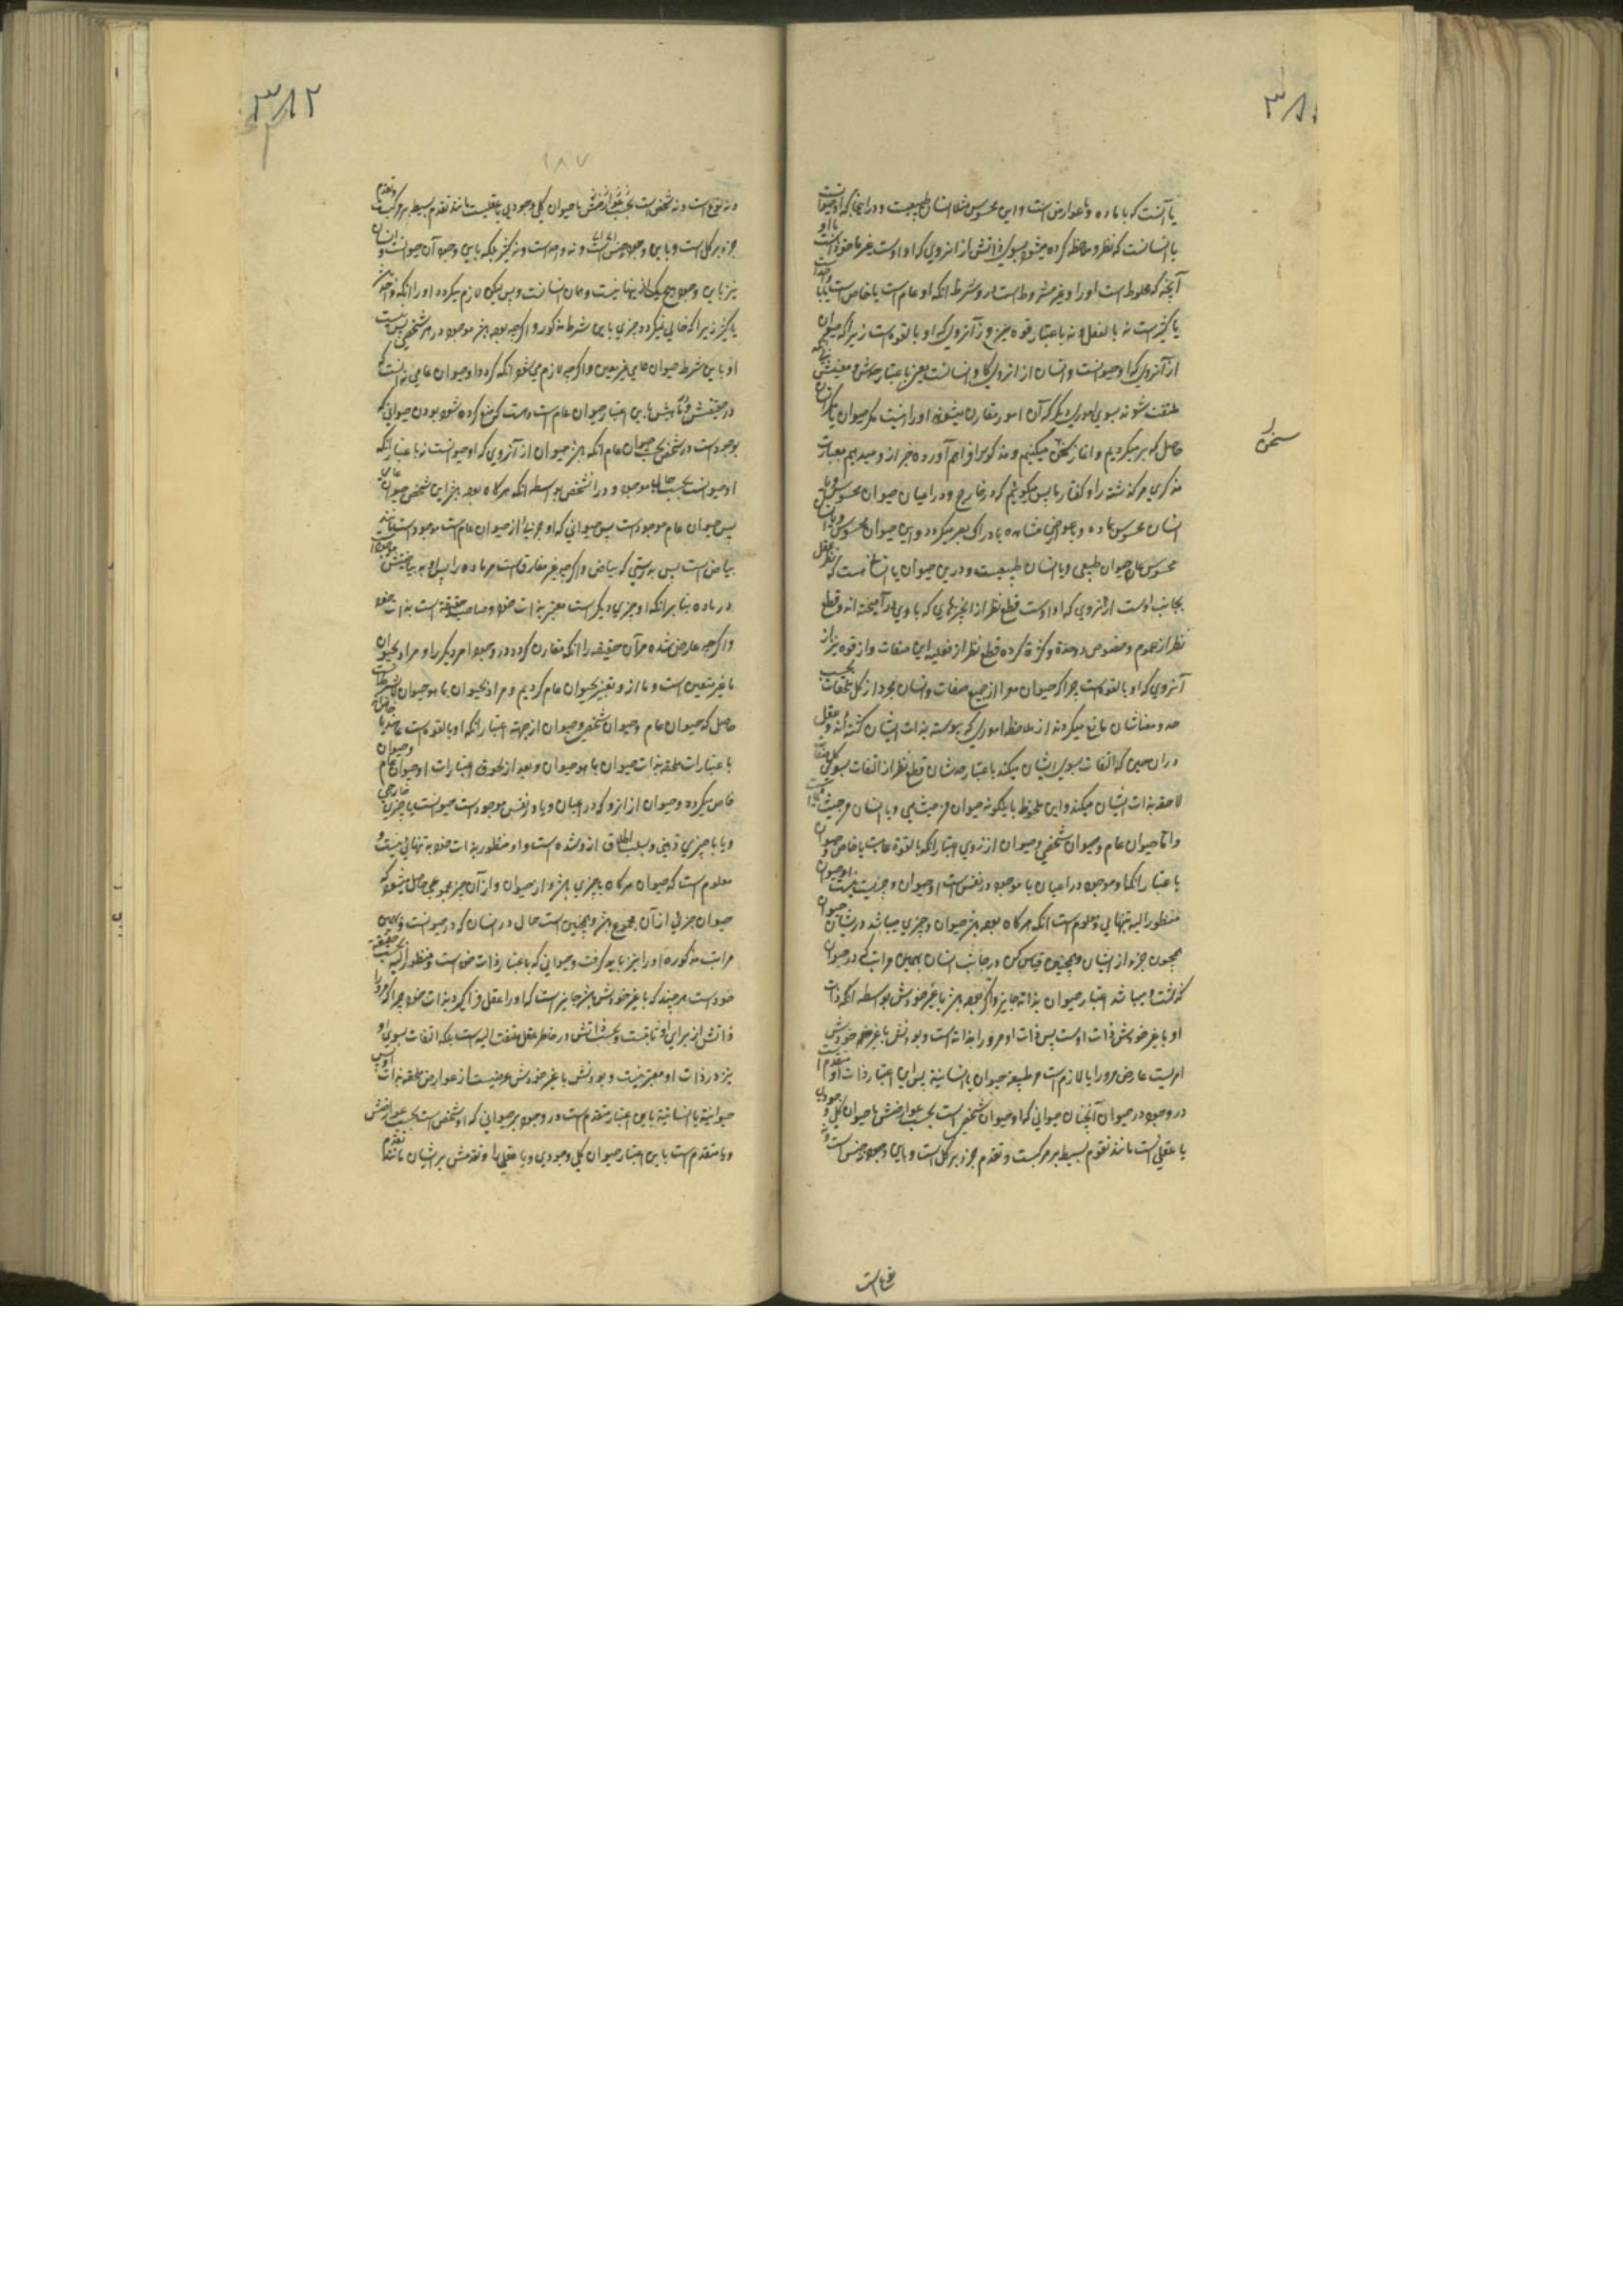 ۳۸۱
یا آنست که با ماده و با عوارض است و این محسوس مثلا انسان طبیعیست و در اینجا که او حیوانست
یا انسانست که نظر و ملاحظه کرده میشود بسوی ذاتش از آنروی که او اوست غیر ماخوذ است با او
آنچه که مخلوط است او را و غیر مشروط است در و شرط انکه او عام است یا خاص است یا واحد است
یا کثیر است نه بالفعل و نه باعتبار قوه نیز و از آنروی که او بالقوه است زیرا که حیوان
از آنروی که او حیوانست و انسان از آنروی که او انسانست یعنی باعتبار حدش و معنیش
ملتفت شونه بسوی امور دیگر که آن امور مقارن میشوند او را نیست مگر حیوان یا انسان
حاصل که بر میگردیم و اغاز سخن میکنیم و مذکور را فراهم آورده خبر از و میدهیم بعبارت
سخن
مذکری مر گذشته را و گفتار ما پس میگوئیم که در خارج و در اعیان حیوان محسوس و یا
انسان محسوس با ماده و با عوارض مشاهده بادراک بصر میگردد و این حیوان محسوس و یا انسان
محسوس همان حیوان طبیعی و یا انسان طبیعیست و در این حیوان یا انسان است که نظر عقل
بجانب اوست از آنروی که او اوست قطع نظر از انچیزهایی که با وی در آمیخته اند و قطع
نظر از عموم و خصوص و وحدة و کثرة کرده قطع نظر از فعلیه این صفات و از قوه نیز از
آنروی که او بالقوه است چرا که حیوان معرا از جمیع صفات و انسان مجرد از کل ملحقات بحسب
حد و معناشان مانع میگردند از ملاحظه اموری که پیوسته بذات ایشان گشته اند و عقل
در ان حین که التفات بسوی ایشان میکند باعتبار حدشان قطع نظر از التفات بسوی کل صفات
لاحقه بذات ایشان میکند و این ملحوظ باینگونه حیوان من حیث هی و یا انسان من حیث
و اما حیوان عام و حیوان شخصی و حیوان از روی اعتبار انکه بالقوة عامست یا خاص و حیوان
باعتبار انکه او موجود در اعیان یا موجود در نفس است او حیوان و چیزیست نیست او حیوان
منظور الیه بتنهائی و معلوم است انکه هر گاه بوده باشد حیوان و چیزی میباشد در ایشان حیوان
همچون جزء از ایشان و همچنین قیاس کن در جانب انسان بهمین مراتب که در حیوان
گذشت و میباشد اعتبار حیوان بذاته جایز و اگر چه بوده باشد با غیر خودش بواسطه انکه ذات
او با غیر خودش ذات اوست پس ذات او مر او را بذاته است و بودنش با غیر خود خودش
امریست عارض مر او را یا لازم است مر طبیعة حیوان یا انسانیة پس این اعتبار ذات او متقدم است
در وجود در حیوان آنچنان حیوانی که او حیوان شخصی است بحسب عوارضش یا حیوان کلی وجودی
یا عقلی است مانند تقدم بسیط بر مرکبست و تقدم جزء بر کل است و باین وجود نه جنس است و نه
۳۸۲
۱۸۷
و نه نوع است و نه شخص است بحسب عوارضش یا حیوان کلی وجودی یا عقلیست مانند تقدم بسیط بر مرکب و تقدم
جزء بر کل است و باین وجود نه جنس است و نه واحد است و نه کثیر بلکه باین وجود آن حیوانست و انسان
نیز باین وجود هیچیک از اینها نیست و همان انسانست و پس لیکن لازم میگردد او را انکه واحد باشد
یا کثیر زیرا که خالی نمیگردد چیزی باین شرط مذکور و اگر چه بوده باشد موجود در هر شخصی پس نیست
او باین شرط حیوان عامی غیر معین و اگر چه لازم می شود انکه گردد او حیوان عامی
در حقیقتش باین اعتبار حیوان عام است و منع کرده شود بودن حیوانی که
موجود است در شخص بحسب حیوان عام انکه باشد حیوان از آنروی که او حیوانست نه باعتبار انکه
او حیوانست بحسب حال ما موجود و در آن شخص بواسطه انکه هر گاه بوده باشد این شخص حیوان
پس حیوان عام موجود است پس حیوانی که او جزئیه از حیوان عام است موجود است مانند
بیاض است پس بدرستی که بیاض و اگر چه غیر مفارق است مر ماده را پس او به بیاضیتش موجود است
در ماده بنا بر انکه او چیزی دیگر است معتبر بذات خود و صاحب حقیقة است بذات خود
و اگر چه عارض شده مر آن حقیقه را انکه مقارن گردد در وجود امر دیگر را و مراد بحیوان
ما غیر متعین است و ما از و تعبیر بحیوان عام کردیم و مراد بحیوان ما هو حیوان لا بشرط است
حاصل که حیوان عام و حیوان شخصی و حیوان از جهة اعتبار انکه او بالقوه است عام یا خاص
باعتبارات ملحقه بذات حیوان ما هو حیوان و بعد از لحوق اعتبارات او حیوان عام و حیوان
خاص میگردد و حیوان از انرو که در اعیان و یا در نفس موجود است حیوانست با چیزی خارجی
و یا با چیزی ذهنی و بسبب اطلاق از و شده است و او منظور بذات خود بتنهائی نیست و
معلوم است که حیوان هر گاه با چیزی باشد و از حیوان و از آن چیز مجموعی حاصل میشود که
حیوان جزئی از آن مجموع باشد و همچنین است حال در انسان که در حیوانست و بهمین
مراتب مذکوره او را نیز باید گرفت و حیوانی که باعتبار ذات خود است و منظور الیه بحسب حقیقة
خود است هر چند که با غیر خودش باشد جایز است که او را عقل فراگیرد بذات خود چرا که
ذاتش از برای او ثابتست و بحسب ذاتش در خاطر عقل ملتفت الیه است بلکه التفات بسوی او
نیز در ذات او معتبر نیست و بودنش با غیر خودش عرضیست از عوارض ملحقه بذات او پس
حیوانیة یا انسانیة باین اعتبار متقدم است در وجود بر حیوانی که او شخص است بحسب عوارضش
و یا متقدم است باین اعتبار حیوان کلی وجودی و یا عقلی را و تقدمش بر ایشان مانند تقدم